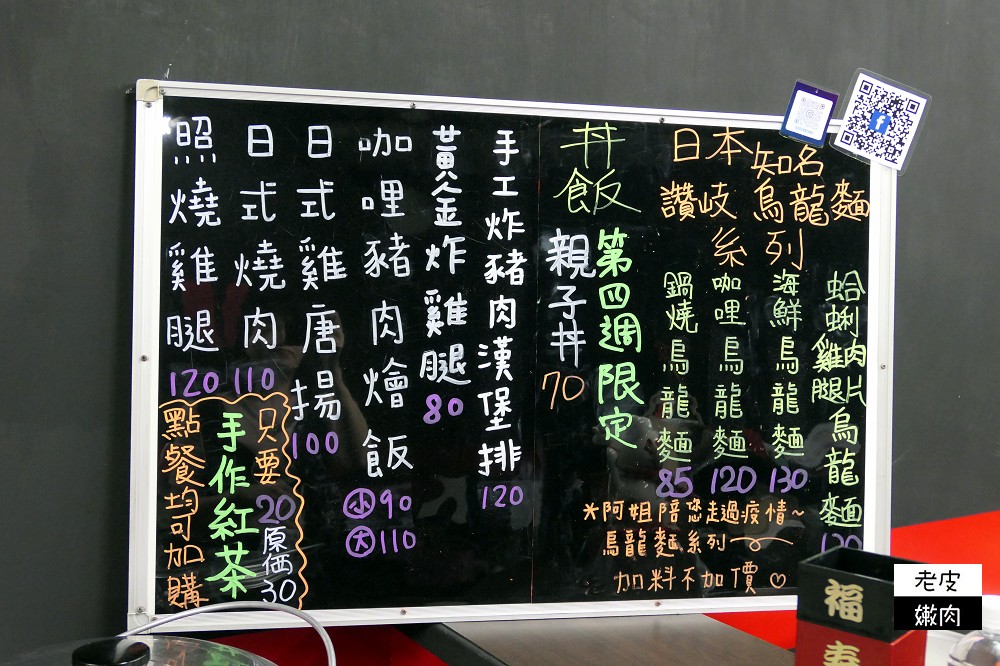 日本知名
讚岐烏龍麵
系列
蛤蜊雞腿肉片烏龍麵
120
海鮮烏龍麵
130
咖哩烏龍麵
120
鍋燒烏龍麵
85
*阿姐陪您走過疫情~
烏龍麵系列
加料不加價♡
丼飯
第四週限定
親子丼
70
手工炸豬肉漢堡排
120
黃金炸雞腿
80
咖哩豬肉燴飯
小90
大110
日式雞唐揚
100
日式燒肉
110
照燒雞腿
120
點餐均可加購
手作紅茶
只要20
原価30
福
春
老皮
嫩肉